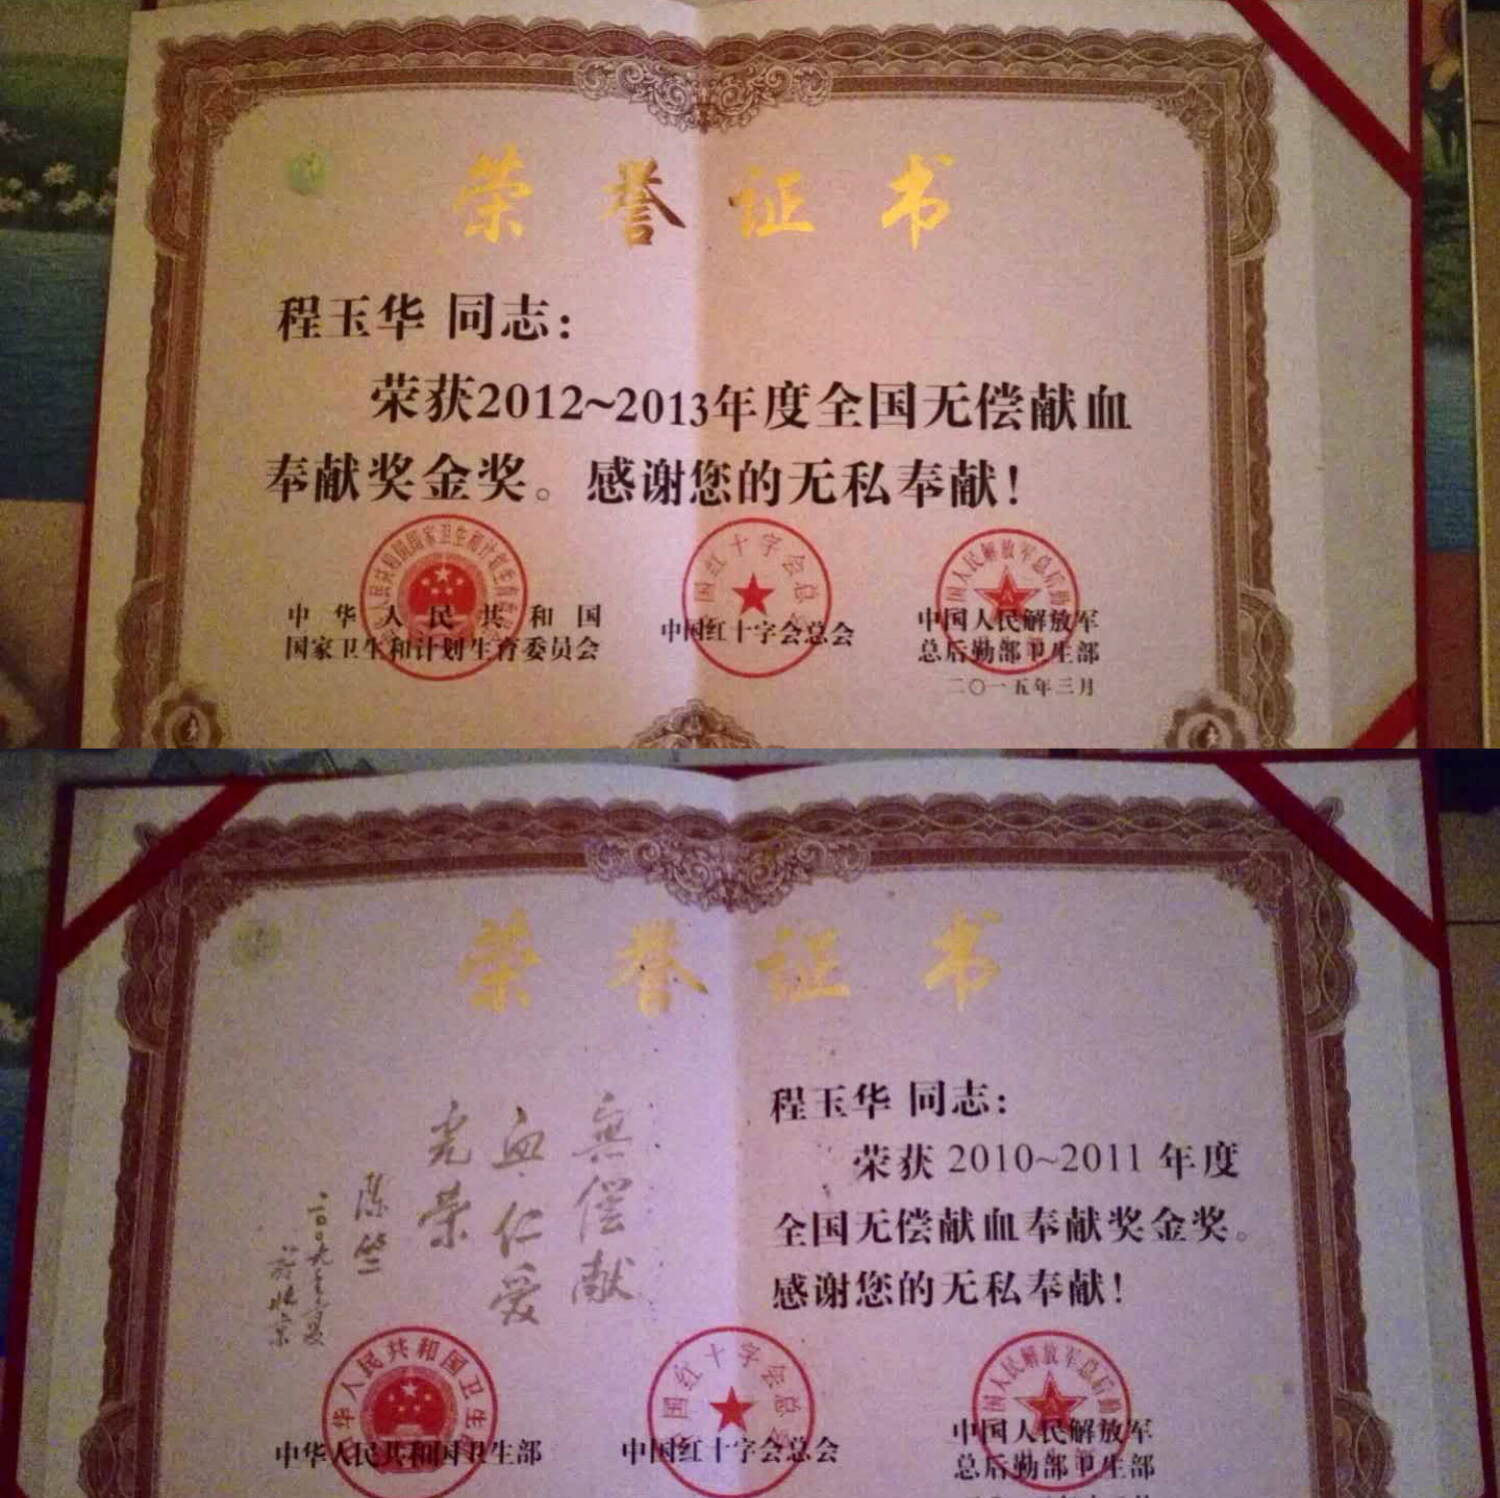 荣誉证书
程玉华 同志：
荣获2012~2013年度全国无偿献血
奉献奖金奖。感谢您的无私奉献！
中华人民共和国
国家卫生和计划生育委员会
中国红十字会总会
中国人民解放军
总后勤部卫生部
二〇一五年三月
荣誉证书
無偿献
血仁爱
光荣
陈竺
二〇〇九年夏
于北京
程玉华 同志：
荣获 2010~2011 年度
全国无偿献血奉献奖金奖。
感谢您的无私奉献！
中华人民共和国卫生部
中国红十字会总会
中国人民解放军
总后勤部卫生部